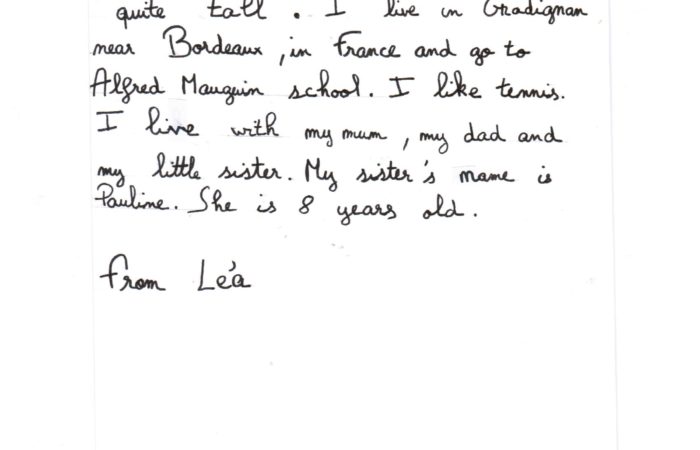 quite tall. I live in Gradignan
near Bordeaux, in France and go to
Alfred Mauguin school. I like tennis.
I live with my mum, my dad and
my little sister. My sister's name is
Pauline. She is 8 years old.
from Léa